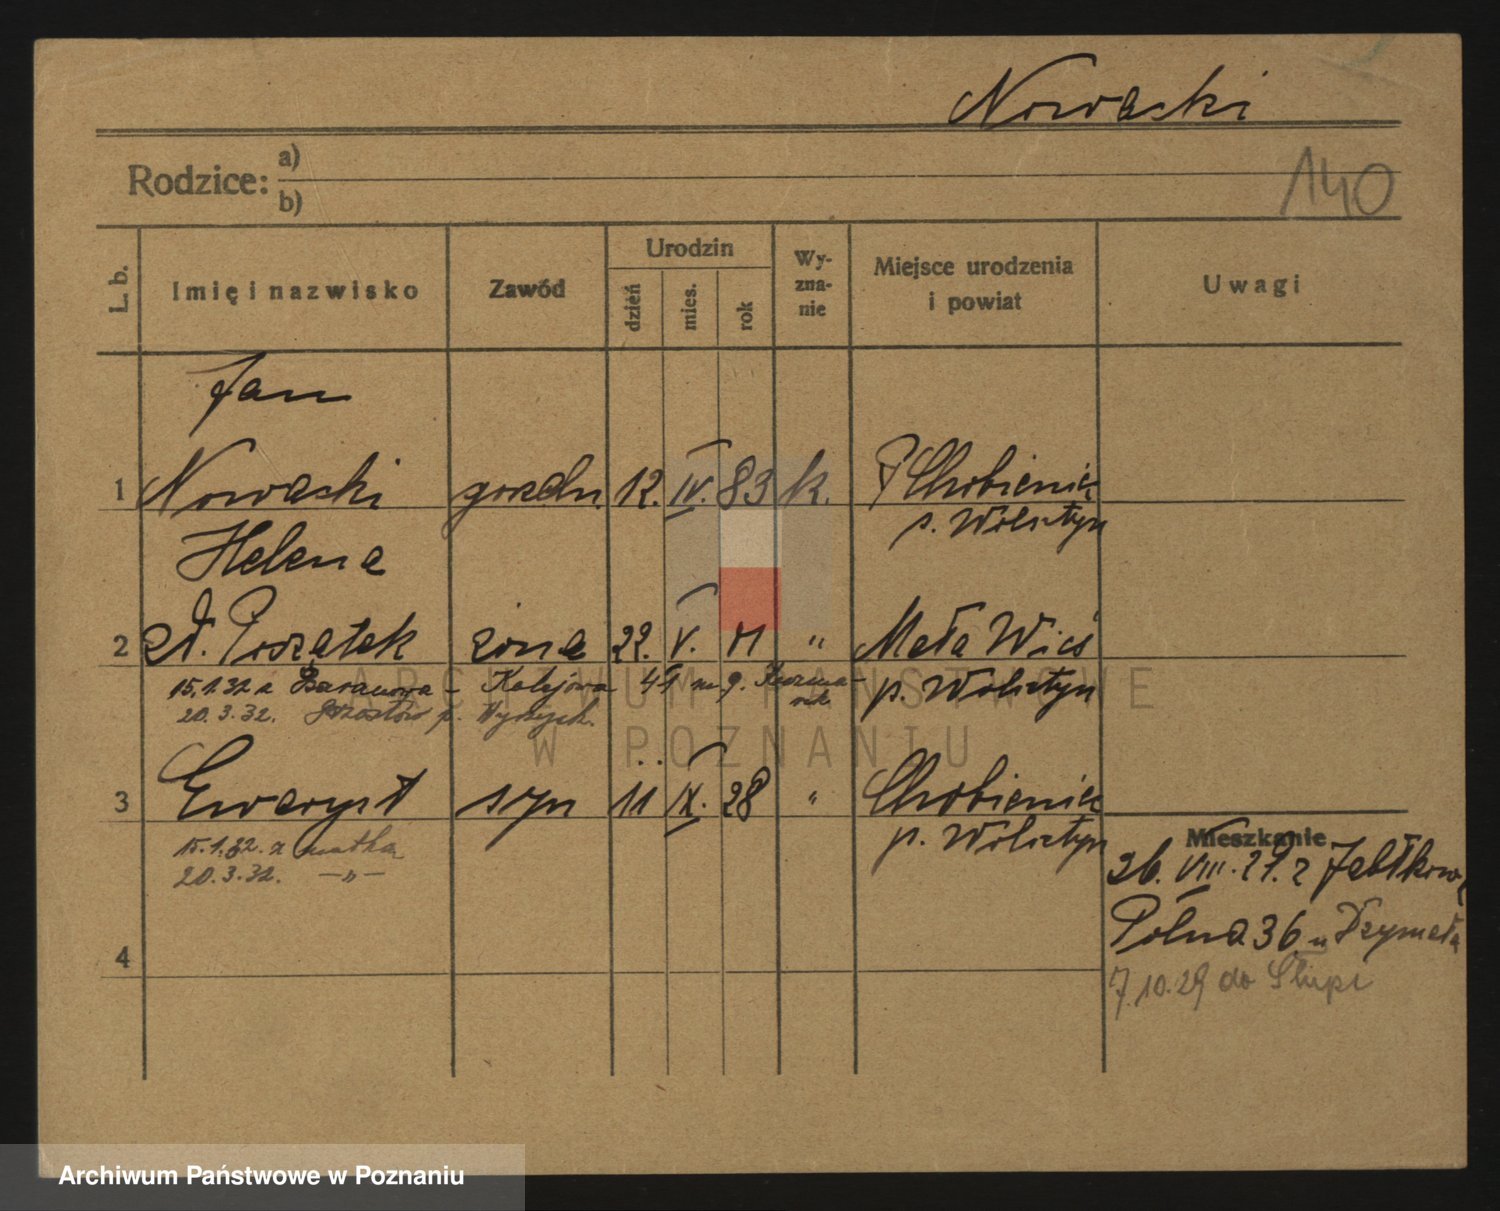 Nowacki
Rodzice: a)
b)
140
L. b.
Imię i nazwisko
Zawód
Urodzin
dzień
mies.
rok
Wy-
zna-
nie
Miejsce urodzenia
i powiat
Uwagi
Jan
1 Nowacki gozdn. 12. IV. 83 k. Chobienice
p. Wolsztyn
Helena
2 zd. Początek żona 22. V. 91 " Mała Wieś
p. Wolsztyn
15.1.32 z Baranowa - Kolejowa 41 m 9.
20.3.32. p. Wyrzysk.
3 Ewaryst syn 11 IX. 28 " Chobienice
p. Wolsztyn
15.1.32. z matką
20.3.32. —"—
4
Mieszkanie
26. VIII. 29. z
Polna 36 u Drzymała
7.10.29 do Słupi
ARCHIWUM PAŃSTWOWE
W POZNANIU
Archiwum Państwowe w Poznaniu